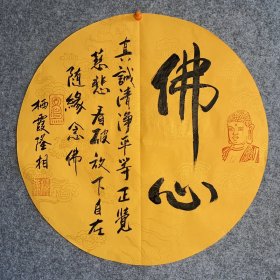 佛心
真誠清淨平等正覺
慈悲看破放下自在
隨緣念佛
栖霞隆相